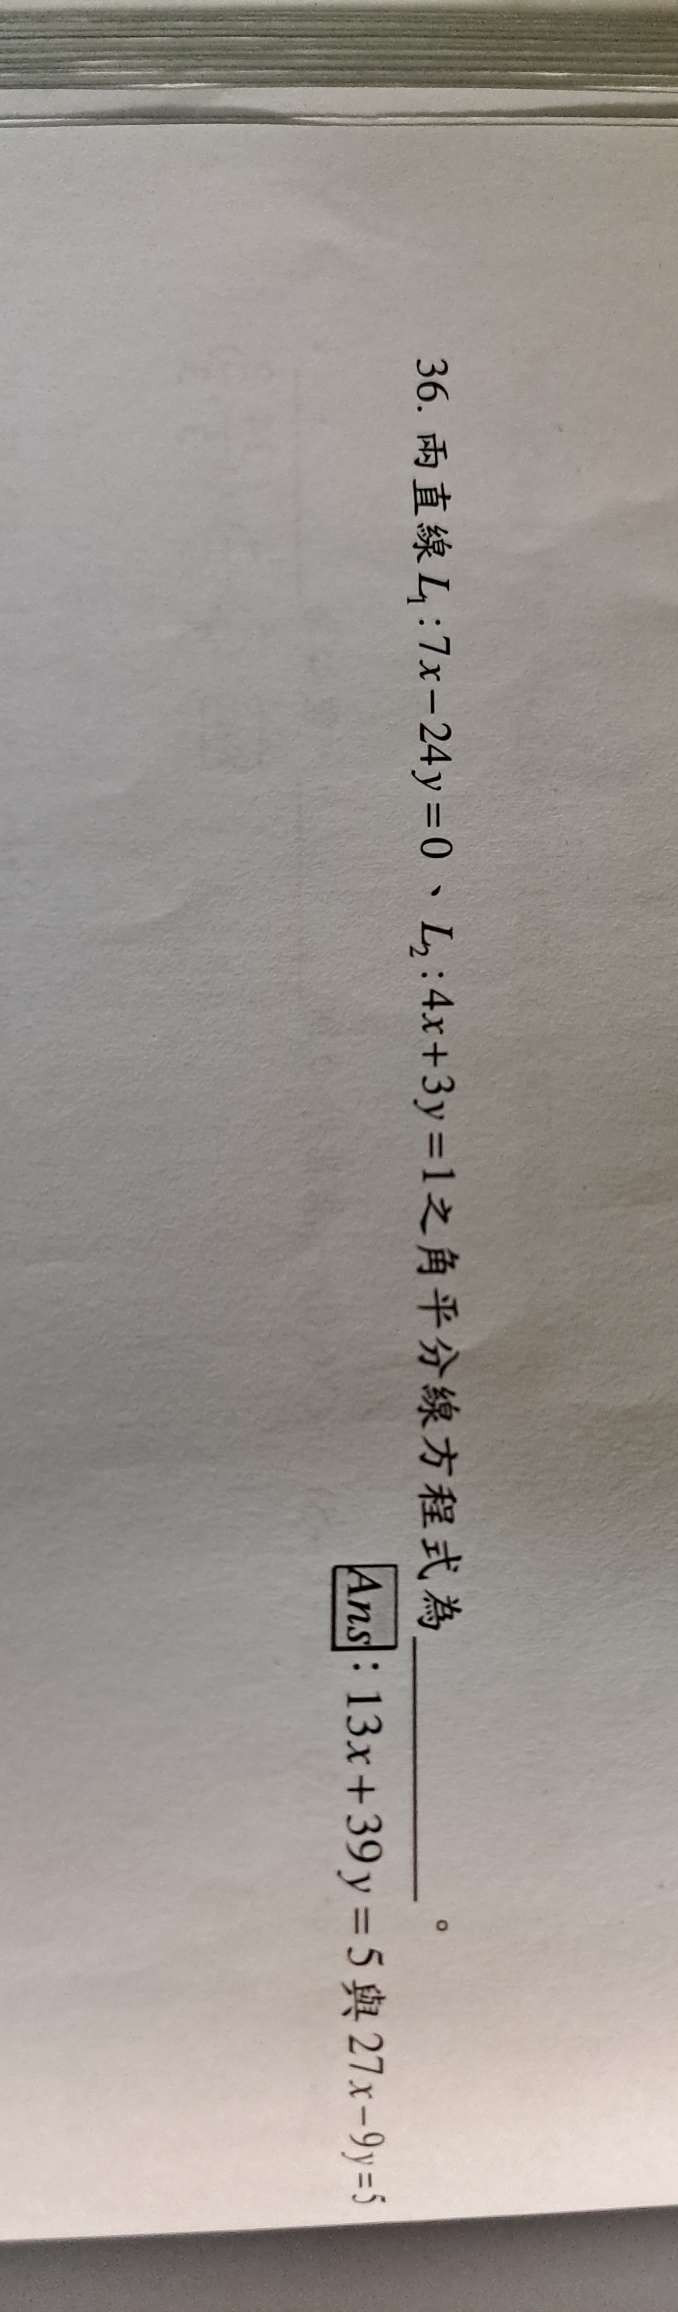 36. 兩直線L₁:7x−24y=0、L₂:4x+3y=1之角平分線方程式為________。
Ans:13x+39y=5與27x−9y=5